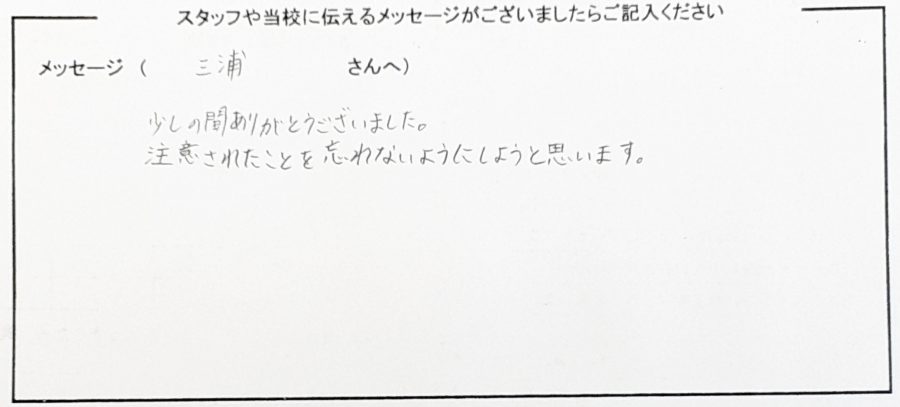 スタッフや当校に伝えるメッセージがございましたらご記入ください
メッセージ ( 三浦 さんへ)
少しの間ありがとうございました。
注意されたことを忘れないようにしようと思います。